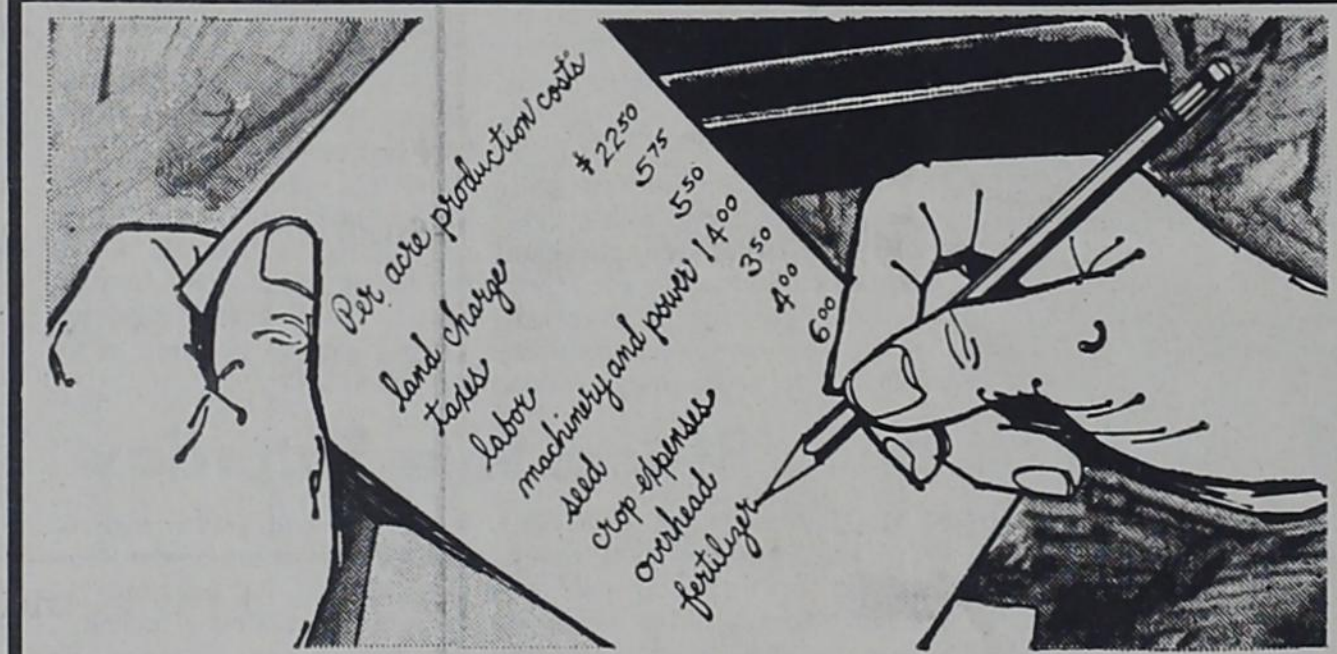 Per acre production costs
land charge $22⁵⁰
taxes 5⁷⁵
labor 5⁵⁰
machinery and power 14⁰⁰
seed 3⁵⁰
crop expenses 4⁰⁰
overhead 6⁰⁰
fertilizer